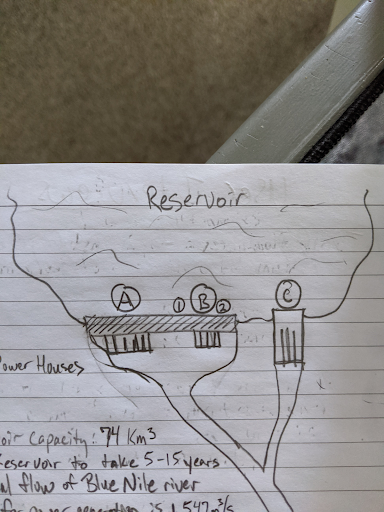 Reservoir
A ① B ② C
Power Houses
oir Capacity: 74 Km³
eservoir to take 5-15 years
al flow of Blue Nile river
for power generation is 1,547 m³/s